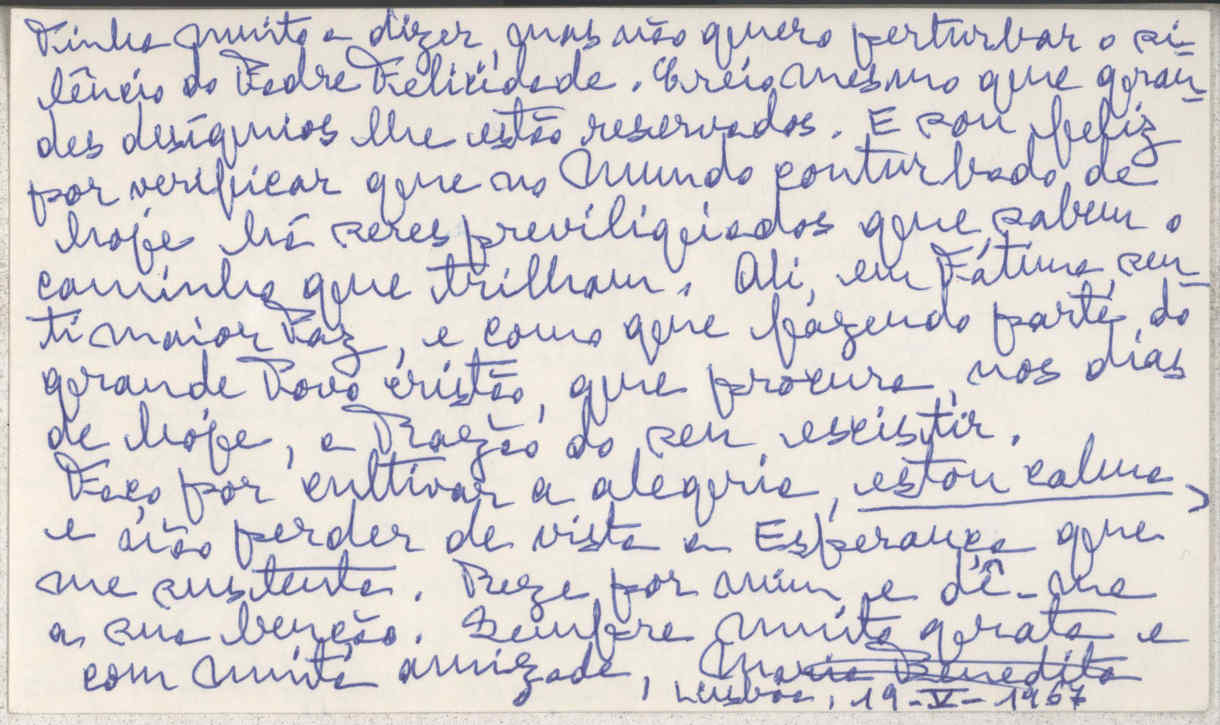 Tinha muito a dizer, mas não quero perturbar o si-
lêncio do Padre Felicidade. Creio mesmo que gran-
des desígnios lhe estão reservados. E sou feliz
por verificar que no Mundo conturbado de
hoje há seres previligiados que sabem o
caminho que trilham. Ali, em Fátima, sen-
ti maior Paz, e como que fazendo parte, do
grande Povo cristão, que procura, nos dias
de hoje, a Razão do seu existir.
Faço por cultivar a alegria, estou calma,
e não perder de vista a Esperança que
me sustenta. Reze por mim, e dê-me
a sua benção. Sempre muito grata e
com muita amizade, Maria Benedita
Lisboa, 19-V-1967